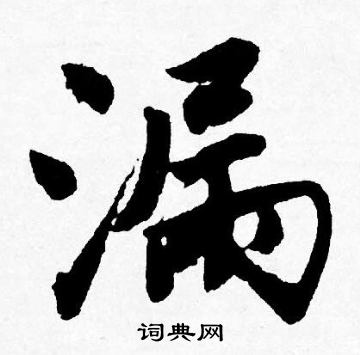 漏
词典网